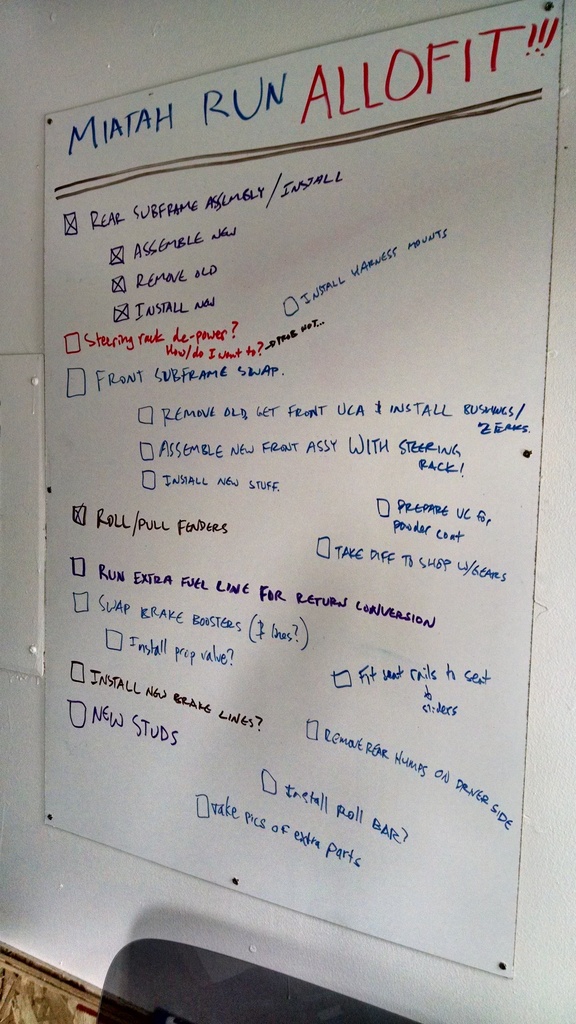 MIATAH RUN ALLOFIT!!!
REAR SUBFRAME ASSEMBLY/INSTALL
ASSEMBLE NEW
REMOVE OLD
INSTALL NEW
INSTALL HARNESS MOUNTS
Steering rack de-power?
How/do I want to? → PROB NOT...
FRONT SUBFRAME SWAP.
REMOVE OLD, GET FRONT UCA & INSTALL BUSHINGS/
ZERKS.
ASSEMBLE NEW FRONT ASSY WITH STEERING
RACK!
INSTALL NEW STUFF.
PREPARE UC for
powder coat
ROLL/PULL FENDERS
TAKE DIFF TO SHOP W/GEARS
RUN EXTRA FUEL LINE FOR RETURN CONVERSION
SWAP BRAKE BOOSTERS (& lines?)
Install prop valve?
Fit seat rails to seat
&
sliders
INSTALL NEW BRAKE LINES?
NEW STUDS
REMOVE REAR HUMPS ON DRIVER SIDE
Install Roll BAR?
Take pics of extra parts